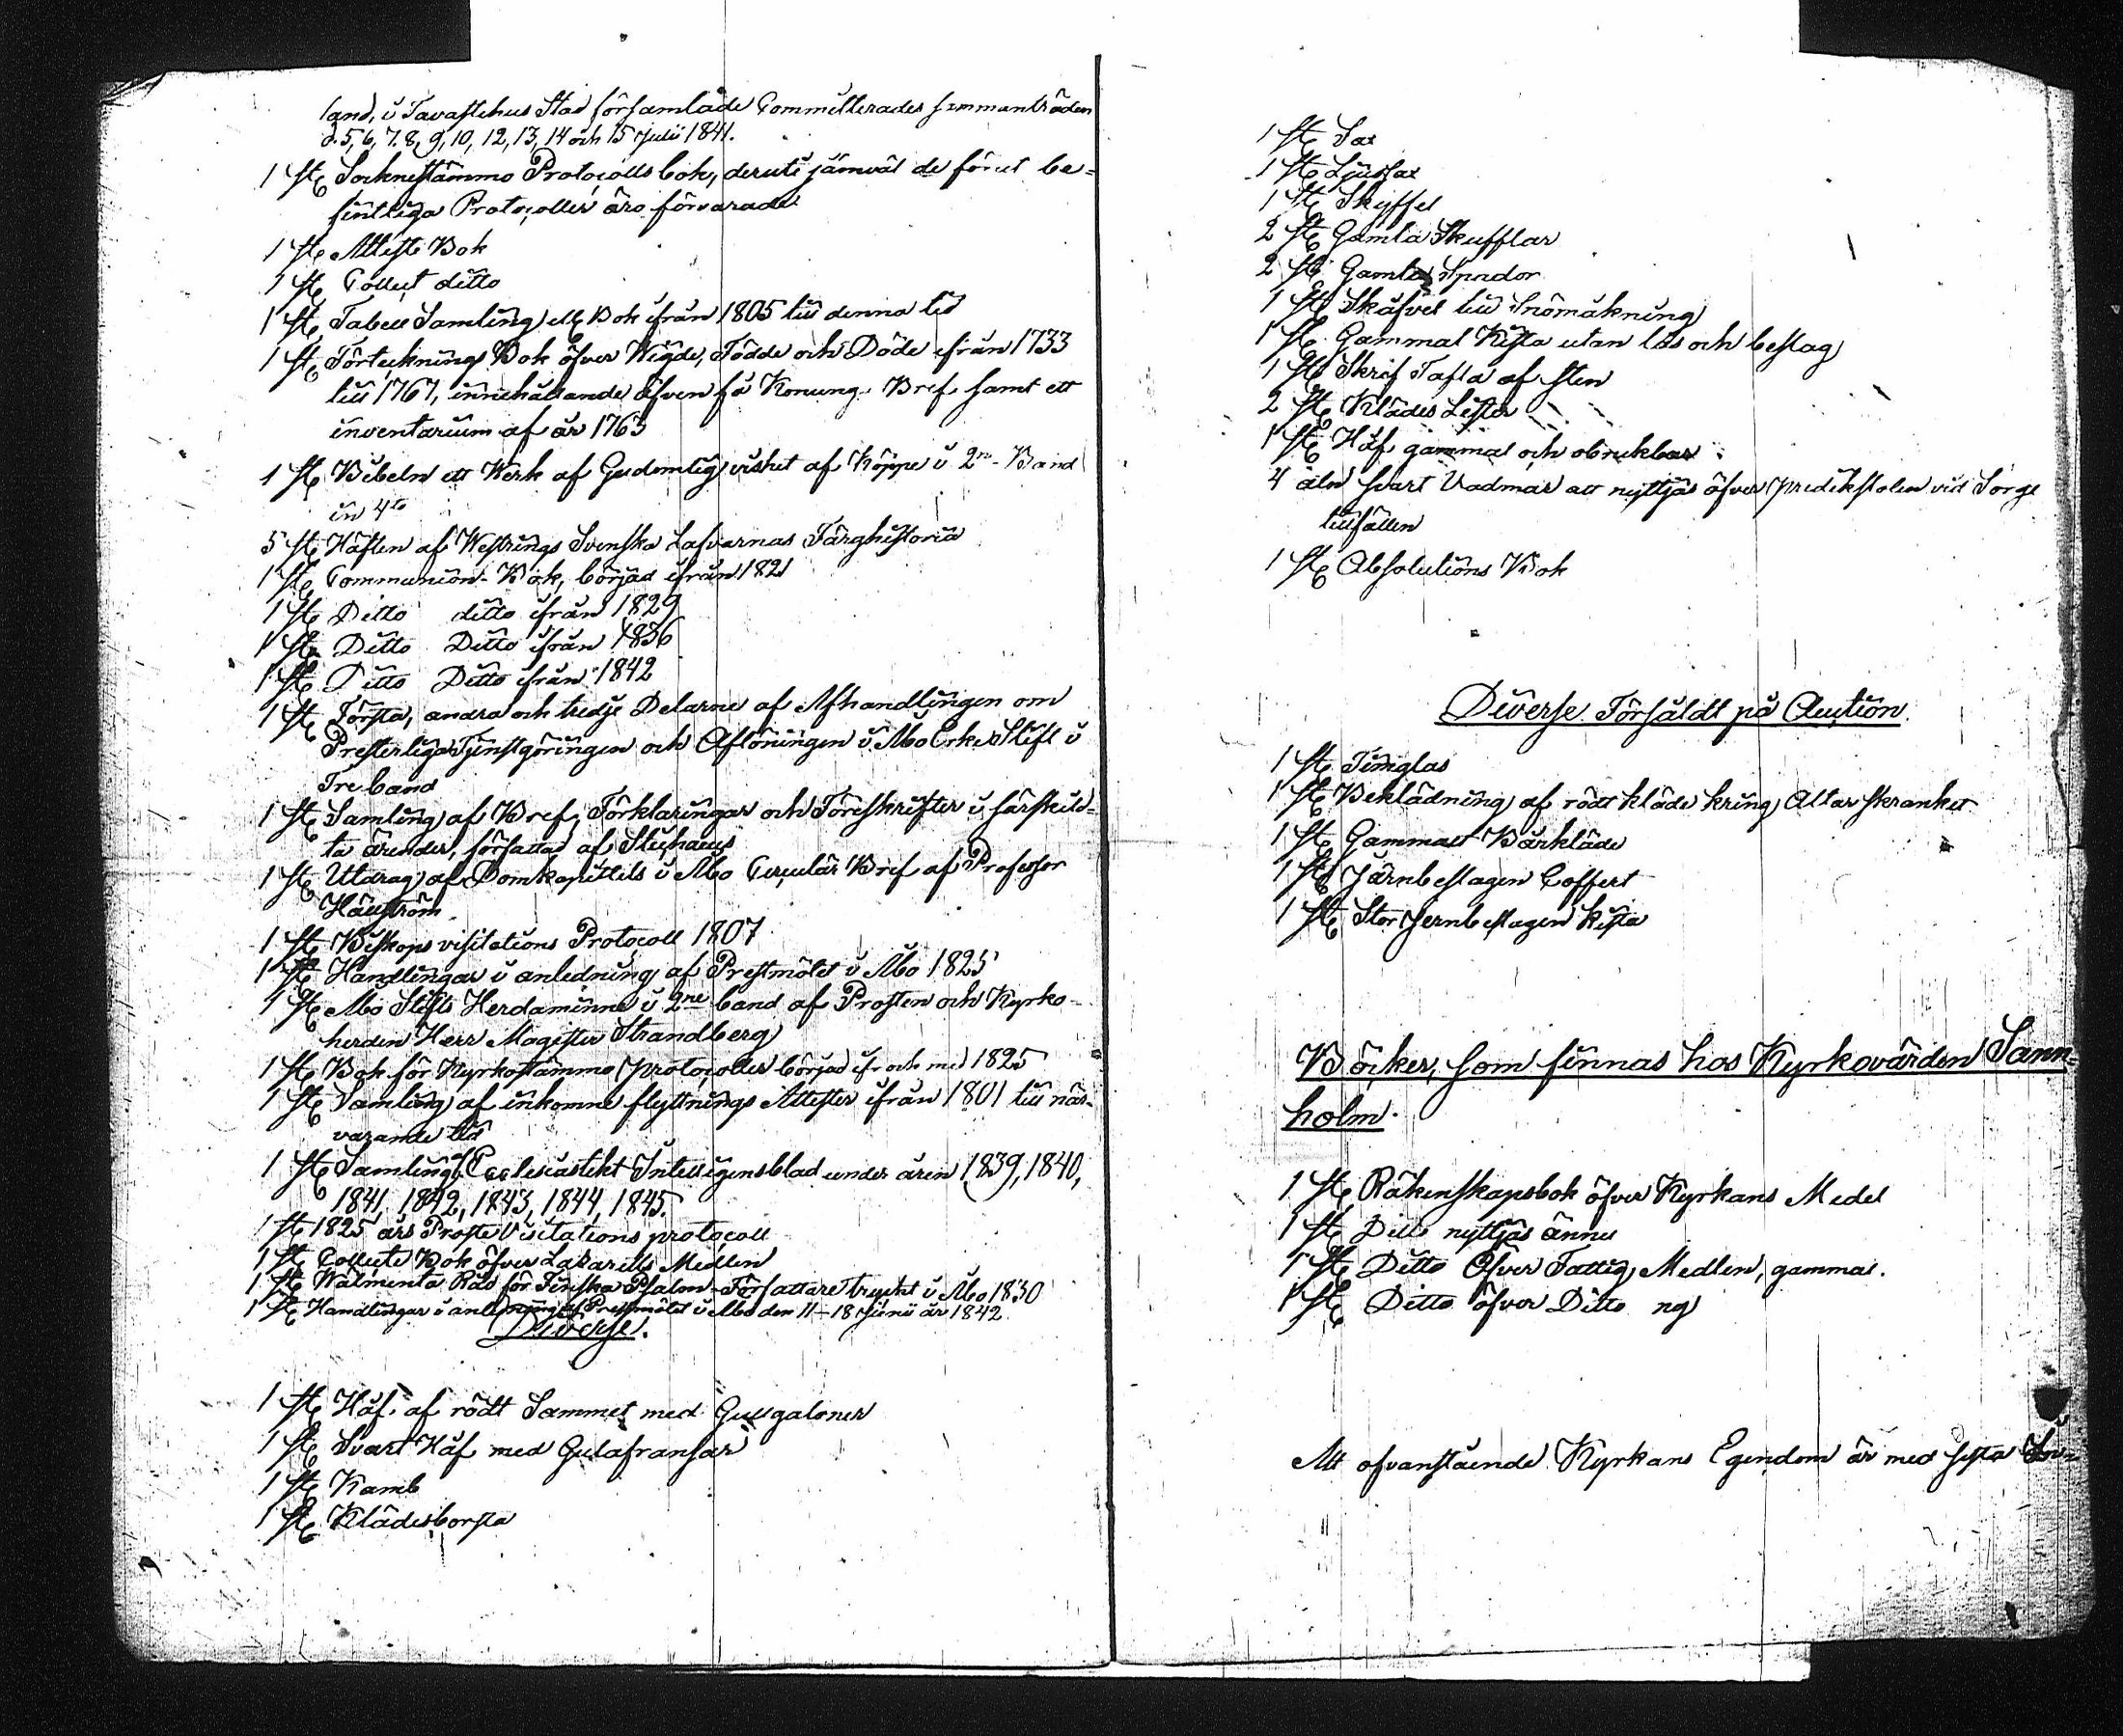 land, i Tavastehus Stad församlade Committerades sammanträden
d. 5, 6, 7, 8, 9, 10, 12, 13, 14 och 15 Julii 1841.
1 st Socknestämmo Protocolls bok, deruti jämväl de förut be=
fintliga Protocoller äro förvarade
1 st Atteste Bok
1 st Collect ditto
1 st Tabell Samling ell Bok ifrån 1805 till denna tid
1 st Förtecknings Bok öfver Wigde, Födde och Döde ifrån 1733
till 1767, innehållande äfven få Konung. Bref samt ett
inventarium af år 1763
1 st Bibeln ett Werk af Gudomlig vishet af Köppe i 2ne Band
in 4to
5 st Häften af Westrings Svenska Lafvarnas Färghistoria
1 st Communion-Bok, börjad ifrån 1821
1 st Ditto ditto ifrån 1829
1 st Ditto Ditto ifrån 1836
1 st Ditto Ditto ifrån 1842
1 st Första, andra och tredje Delarne af Afhandlingen om
Presterliga Tjenstgöringen och Aflöningen i Åbo Erke Stift i
Tre band
1 st Samling af Bref, Förklaringar och Föreskrifter i särskild-
ta ärender, författad af Stichaeus
1 st Utdrag af Domkapitlets i Åbo Circulär Bref af Professor
Hällström
1 st Biskops visitations Protocoll 1807
1 st Handlingar i anledning af Prestmötet i Åbo 1825
1 st Åbo Stifts Herdaminne i 2ne band af Prosten och Kyrko-
herden Herr Magister Strandberg
1 st Bok för Kyrkostämmo protocoller börjad ifr och med 1825
1 st Samling af inkomne flyttnings Attester ifrån 1801 till när-
varande tid
1 st Samling af Ecclesiastikt Intelligensblad under åren 1839, 1840,
1841, 1842, 1843, 1844, 1845.
1 st 1825 års Proste Visitations protocoll
1 st Collecte Bok öfver Lazaretts Medlen
1 st Wälmenta Råd för Finska Psalm-Författare tryckt i Åbo 1830
1 st Handlingar i anledning af Prestmötet i Åbo den 11-18 Junii år 1842
Diverse.
1 st Håf af rödt Sammet med Gullgaloner
1 st Svart Håf med Gulafransar
1 st Kamb
1 st Klädesborsta
1 st Sax
1 st Ljussax
1 st Skyffel
2 st Gamla Skufflar
2 st Gamla Spador
1 st Skåfvel till Snömåkning
1 st Gammal Kista utan lås och beslag
1 st Skrif Tafla af sten
2 st Klädes Lister
1 st Håf gammal och obrukbar
4 aln svart Vadmar att nyttjas öfver predikstolen vid Sorge
tillfällen
1 st Absolutions Bok
Diverse Försåldt på Auction.
1 st Timglas
1 st Beklädning af rödt kläde kring Altar skranket
1 st Gammalt Bårkläde
1 st Järnbeslagen Coffert
1 st Stor Jernbeslagen Kista
Böcker, som finnas hos Kyrkovärden Sann=
holm.
1 st Räkenskapsbok öfver Kyrkans Medel
1 st Ditto nyttjas ännu
1 st Ditto Öfver Fattig Medlen, gammal.
1 st Ditto öfver Ditto ny
Att ofvanstående Kyrkans Egendom är med sista In-